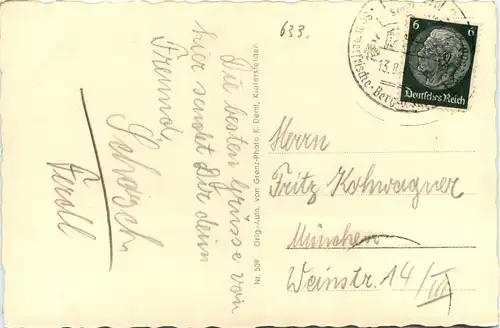 633.
Die besten Grüsse von
hier sendet Dir dein
Freund,
Schorsch
Ferdl
Nr. 509 Orig.-Aufn. von Grenz-Photo K. Deml, Kiefersfelden
6 6
Deutsches Reich
13.8
frische · Berg
Herrn
Fritz Kohwagner
München
Weinstr. 14/III